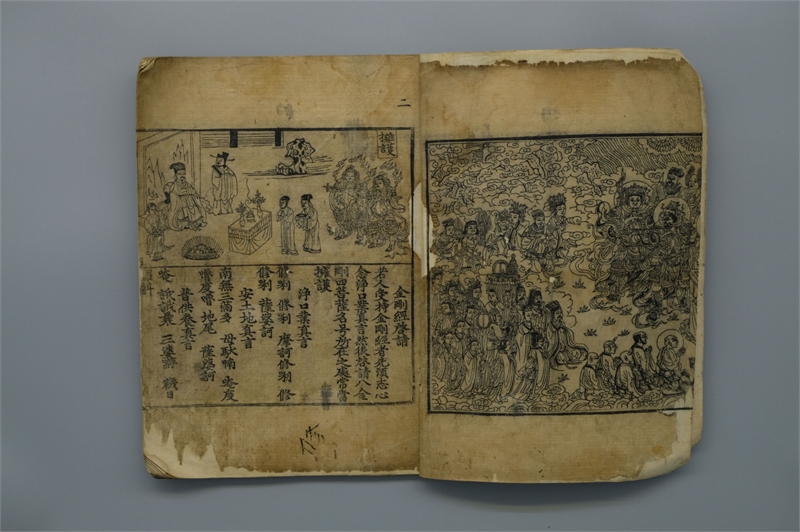 二
擁護
金剛經啓請
若人受持金剛經者先須志心
念淨口業真言然後啓請八金
剛四菩薩名号所在之處常當
擁護
淨口業真言
修唎 修唎 摩訶修唎 修
修唎 薩婆訶
安土地真言
南無三滿多 母馱喃 唵度
嚕度嚕 地尾 薩婆訶
普供養真言
唵 誐誐曩 三婆嚩 襪日